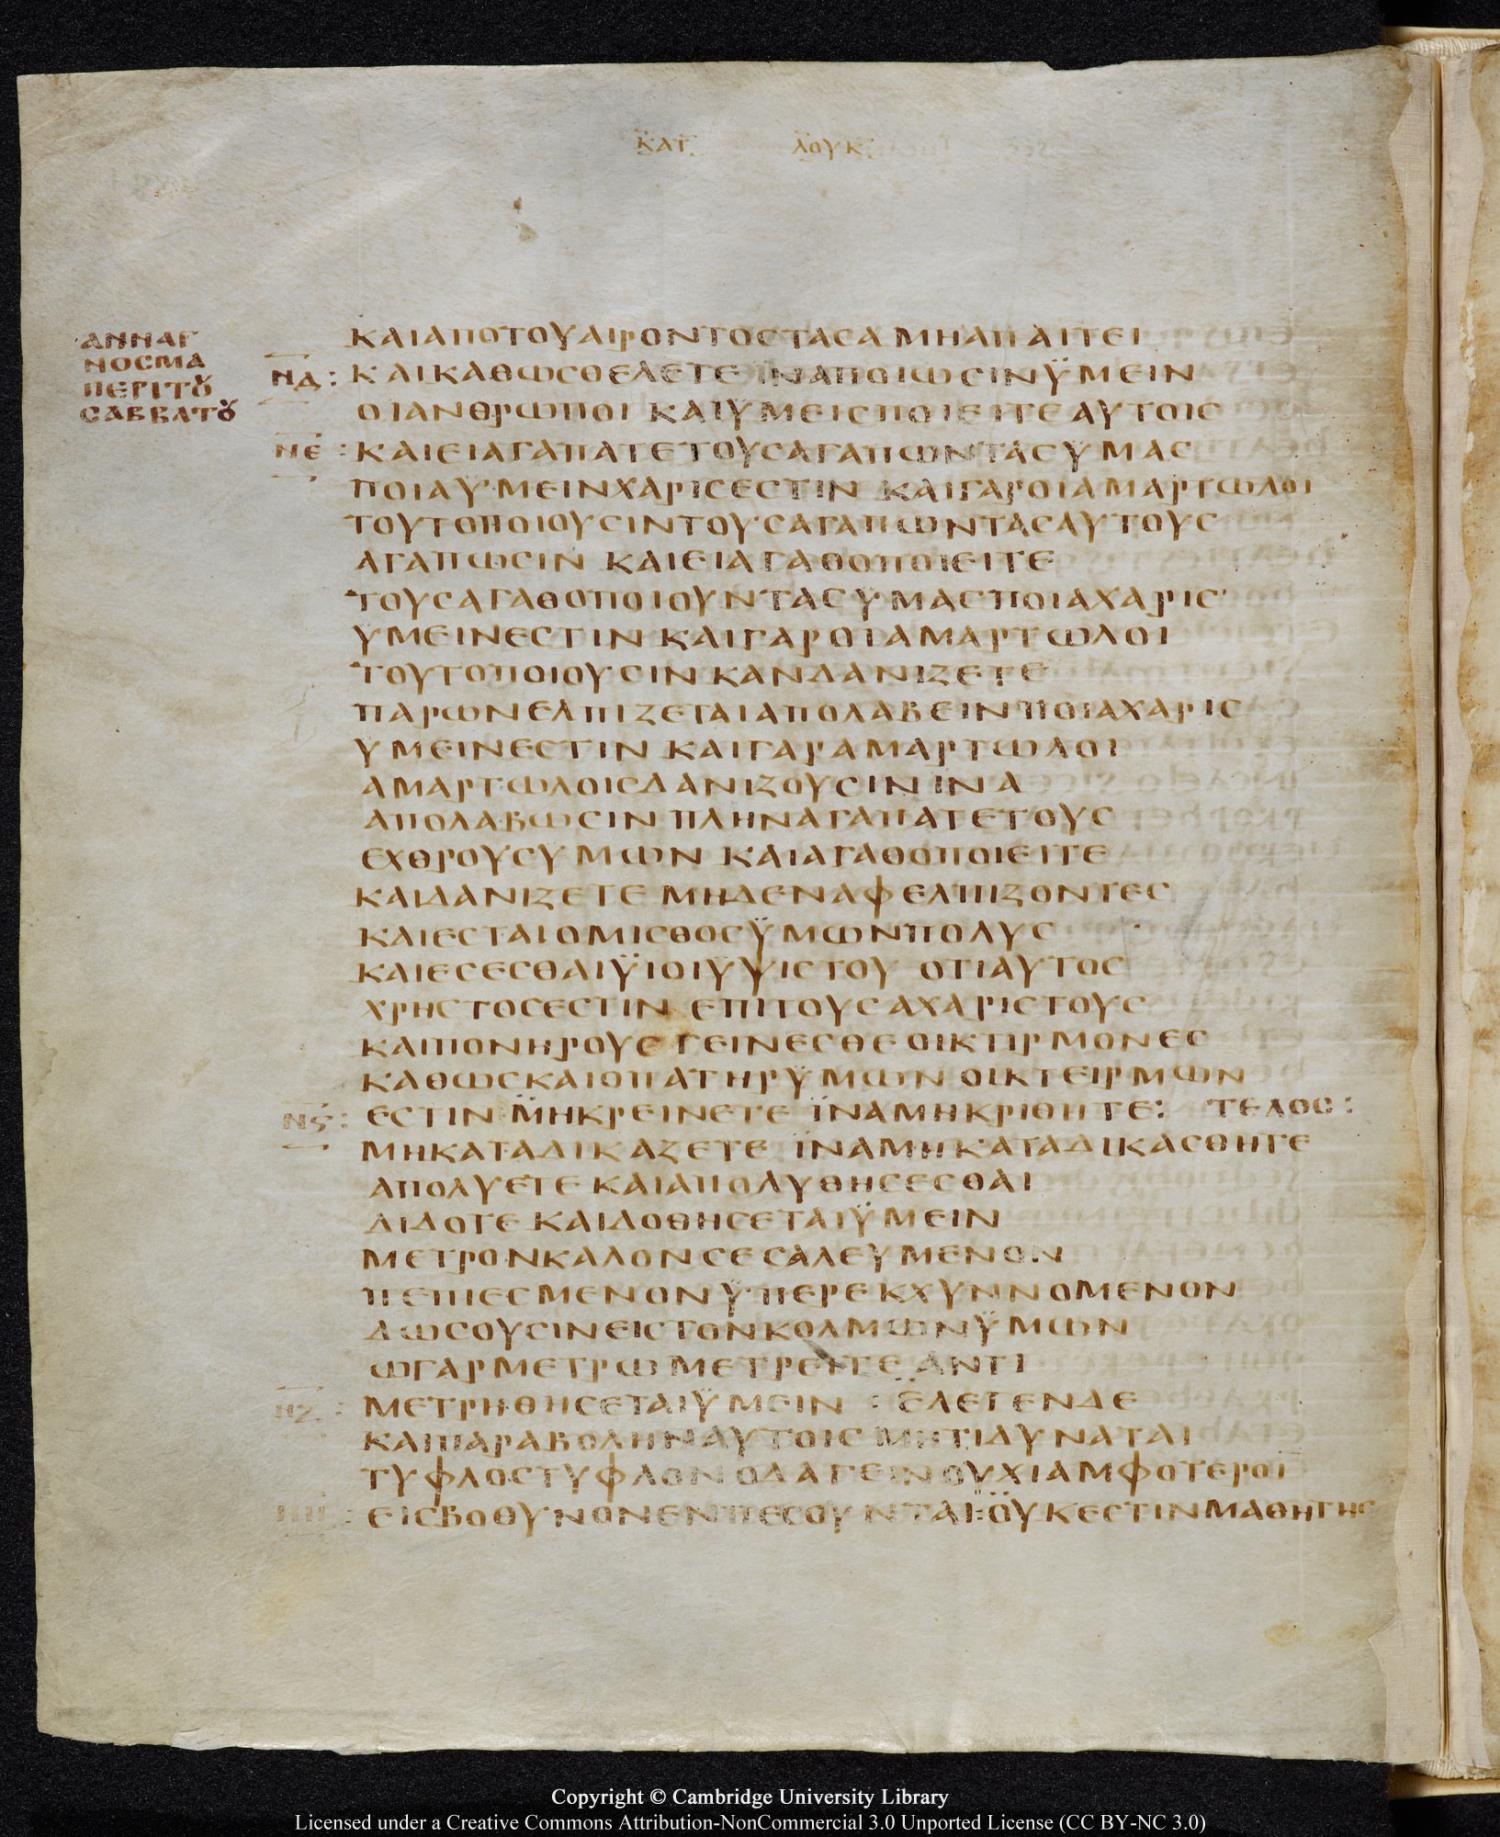 ΚΑΤ ΛΟΥΚ
ΑΝΝΑΓ
ΝΟСΜΑ
ΠΕΡΙΤȢ
САΒΒΑΤȢ
ΚΑΙΑΠΟΤΟΥΑΙΡΟΝΤΟСΤΑСΑ ΜΗΑΠΑΙΤΕΙ
ΝΔ: ΚΑΙΚΑΘΩСΘΕΛΕΤΕ ΪΝΑΠΟΙΩСΙΝΫΜΕΙΝ
ΟΙΑΝΘΡΩΠΟΙ ΚΑΙΫΜΕΙСΠΟΙΕΙΤΕΑΥΤΟΙС
ΝΕ: ΚΑΙΕΙΑΓΑΠΑΤΕΤΟΥСΑΓΑΠΩΝΤΑСΫΜΑС
ΠΟΙΑΥΜΕΙΝΧΑΡΙСΕСΤΙΝ ΚΑΙΓΑΡΟΙΑΜΑΡΤΩΛΟΙ
ΤΟΥΤΟΠΟΙΟΥСΙΝΤΟΥСΑΓΑΠΩΝΤΑСΑΥΤΟΥС
ΑΓΑΠΩСΙΝ ΚΑΙΕΙΑΓΑΘΟΠΟΙΕΙΤΕ
ΤΟΥСΑΓΑΘΟΠΟΙΟΥΝΤΑСΫΜΑСΠΟΙΑΧΑΡΙС
ΥΜΕΙΝΕСΤΙΝ ΚΑΙΓΑΡΟΙΑΜΑΡΤΩΛΟΙ
ΤΟΥΤΟΠΟΙΟΥСΙΝ ΚΑΝΔΑΝΙΖΕΤΕ
ΠΑΡΩΝΕΛΠΙΖΕΤΑΙΑΠΟΛΑΒΕΙΝΠΟΙΑΧΑΡΙС
ΥΜΕΙΝΕСΤΙΝ ΚΑΙΓΑΡΑΜΑΡΤΩΛΟΙ
ΑΜΑΡΤΩΛΟΙСΔΑΝΙΖΟΥСΙΝ ΙΝΑ
ΑΠΟΛΑΒΩСΙΝ ΠΛΗΝΑΓΑΠΑΤΕΤΟΥС
ΕΧΘΡΟΥСΥΜΩΝ ΚΑΙΑΓΑΘΟΠΟΙΕΙΤΕ
ΚΑΙΔΑΝΙΖΕΤΕ ΜΗΔΕΝΑΦΕΛΠΙΖΟΝΤΕС
ΚΑΙΕСΤΑΙΟΜΙСΘΟСΫΜΩΝΠΟΛΥС
ΚΑΙΕСΕСΘΑΙΫΙΟΙΥΨΙСΤΟΥ ΟΤΙΑΥΤΟС
ΧΡΗСΤΟСΕСΤΙΝ ΕΠΙΤΟΥСΑΧΑΡΙСΤΟΥС
ΚΑΙΠΟΝΗΡΟΥС ΓΕΙΝΕСΘΕΟΙΚΤΙΡΜΟΝΕС
ΚΑΘΩСΚΑΙΟΠΑΤΗΡΫΜΩΝ ΟΙΚΤΕΙΡΜΩΝ
ΝϚ: ΕСΤΙΝ ΜΗΚΡΕΙΝΕΤΕ ΪΝΑΜΗΚΡΙΘΗΤΕ: ΤΕΛΟС:
ΜΗΚΑΤΑΔΙΚΑΖΕΤΕ ΪΝΑΜΗΚΑΤΑΔΙΚΑСΘΗΤΕ
ΑΠΟΛΥΕΤΕ ΚΑΙΑΠΟΛΥΘΗСΕСΘΑΙ
ΔΙΔΟΤΕ ΚΑΙΔΟΘΗСΕΤΑΙΫΜΕΙΝ
ΜΕΤΡΟΝΚΑΛΟΝ СΕСΑΛΕΥΜΕΝΟΝ
ΠΕΠΙΕСΜΕΝΟΝ ΫΠΕΡΕΚΧΥΝΝΟΜΕΝΟΝ
ΔΩСΟΥСΙΝΕΙСΤΟΝΚΟΛΜΩΝΫΜΩΝ
ΩΓΑΡΜΕΤΡΩΜΕΤΡΕΙΤΕ ΑΝΤΙ
ΝΖ: ΜΕΤΡΗΘΗСΕΤΑΙΫΜΕΙΝ : ΕΛΕΓΕΝΔΕ
ΚΑΙΠΑΡΑΒΟΛΗΝΑΥΤΟΙС ΜΗΤΙΔΥΝΑΤΑΙ
ΤΥΦΛΟСΤΥΦΛΟΝΟΔΑΓΕΙΝ ΟΥΧΙΑΜΦΟΤΕΡΟΙ
ΝΗ: ΕΙСΒΟΘΥΝΟΝΕΝΠΕСΟΥΝΤΑΙ:ΟΥΚΕСΤΙΝΜΑΘΗΤΗС
Copyright © Cambridge University Library
Licensed under a Creative Commons Attribution-NonCommercial 3.0 Unported License (CC BY-NC 3.0)